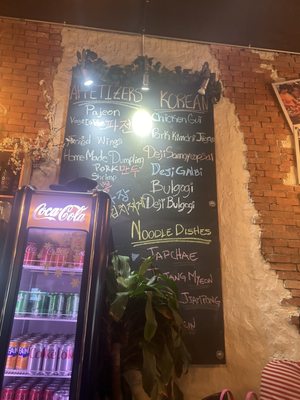 APPETIZERS
Pajeon
Vegetable 파전
Fried Wings
Home Made-Dumpling
Pork 만두
Shrimp
KOREAN
Chicken Gui
Pork Kimchi Jigae
Deji
Deji Galbi
Bulgogi
Deji Bulgogi
NOODLE DISHES
JAPCHAE
JJAJANG MYEON
JJAMPONG
Coca-Cola